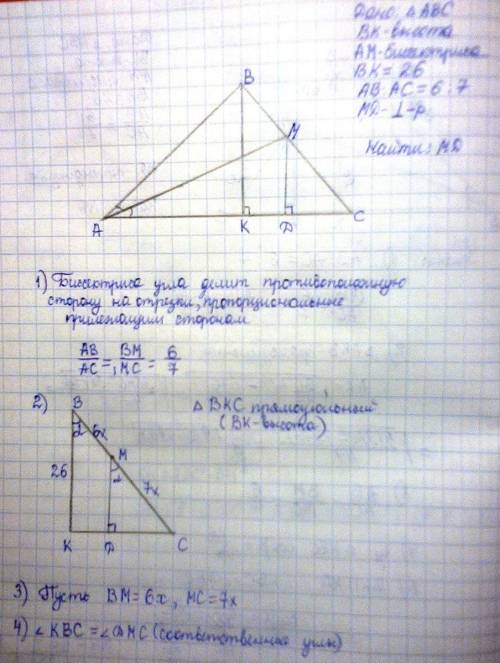 Дано: △ ABC
BK-высота
AM-биссектриса
BK = 26
AB:AC = 6:7
MD-⊥-р
Найти: MD
B
M
A
K
D
C
1) Биссектриса угла делит противоположную
сторону на отрезки, пропорциональные
прилежащим сторонам
AB/AC = BM/MC = 6/7
2)
B
△ BKC прямоугольный
(BK-высота)
6x
M
26
7x
K
D
C
3) Пусть BM = 6x, MC = 7x
4) ∠KBC = ∠DMC (соответственные углы)